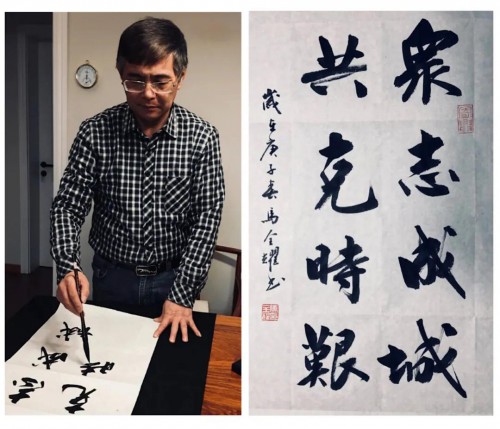 衆志成城
共克時艱
歲在庚子春馬全耀书